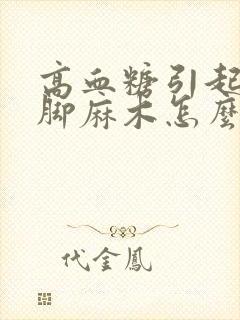 高血糖引起
脚麻木怎麼
代金鳳